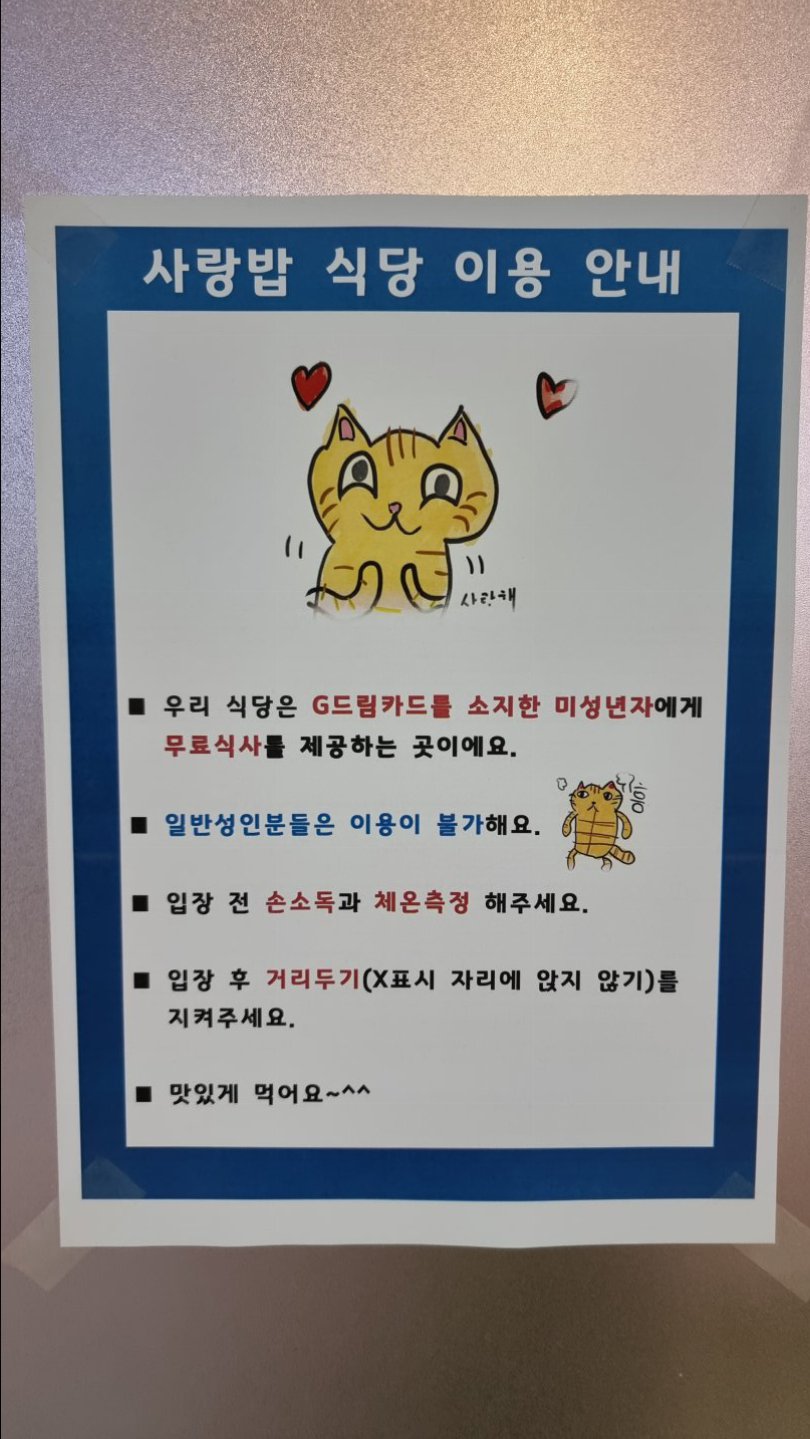 사랑밥 식당 이용 안내
사랑해
■ 우리 식당은 G드림카드를 소지한 미성년자에게
무료식사를 제공하는 곳이에요.
■ 일반성인분들은 이용이 불가해요.
■ 입장 전 손소독과 체온측정 해주세요.
■ 입장 후 거리두기(X표시 자리에 앉지 않기)를
지켜주세요.
■ 맛있게 먹어요~^^